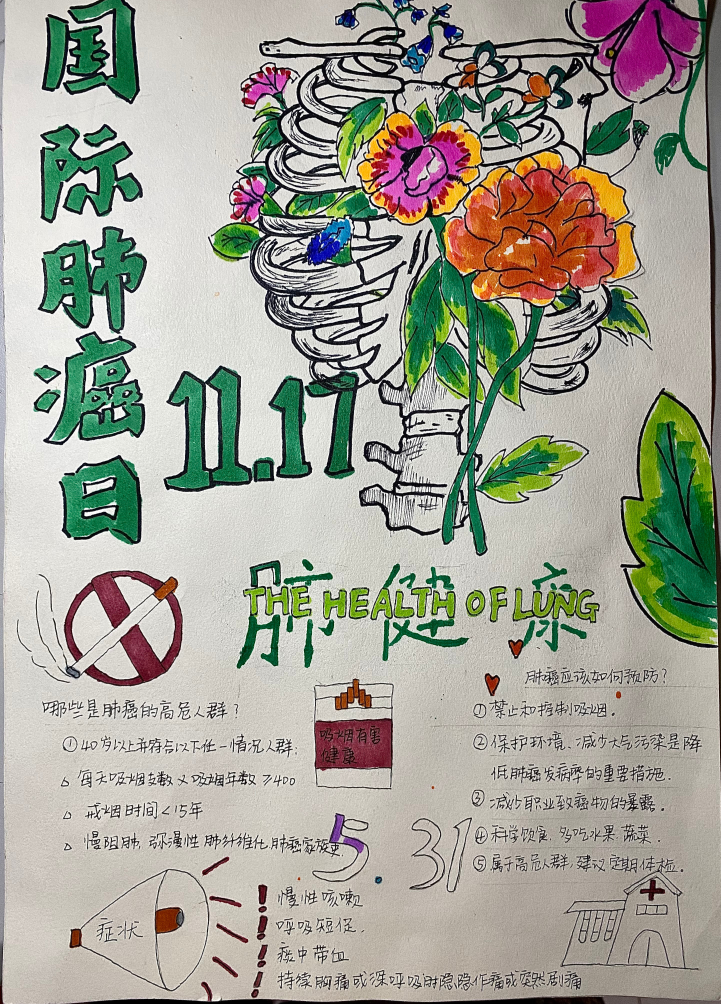 国际肺癌日
11.17
肺健康
THE HEALTH OF LUNG
哪些是肺癌的高危人群？
①40岁以上并符合以下任一情况人群:
△ 每天吸烟支数×吸烟年数≥400
△ 戒烟时间<15年
△ 慢阻肺,弥漫性肺纤维化,肺癌家族史
吸烟有害
健康
5.31
肺癌应该如何预防?
①禁止和控制吸烟.
②保护环境、减少大气污染是降
低肺癌发病率的重要措施.
③减少职业致癌物的暴露.
④科学饮食,多吃水果、蔬菜.
⑤属于高危人群,建议定期体检.
症状
慢性咳嗽
呼吸短促.
痰中带血
持续胸痛或深呼吸时隐隐作痛或突然剧痛